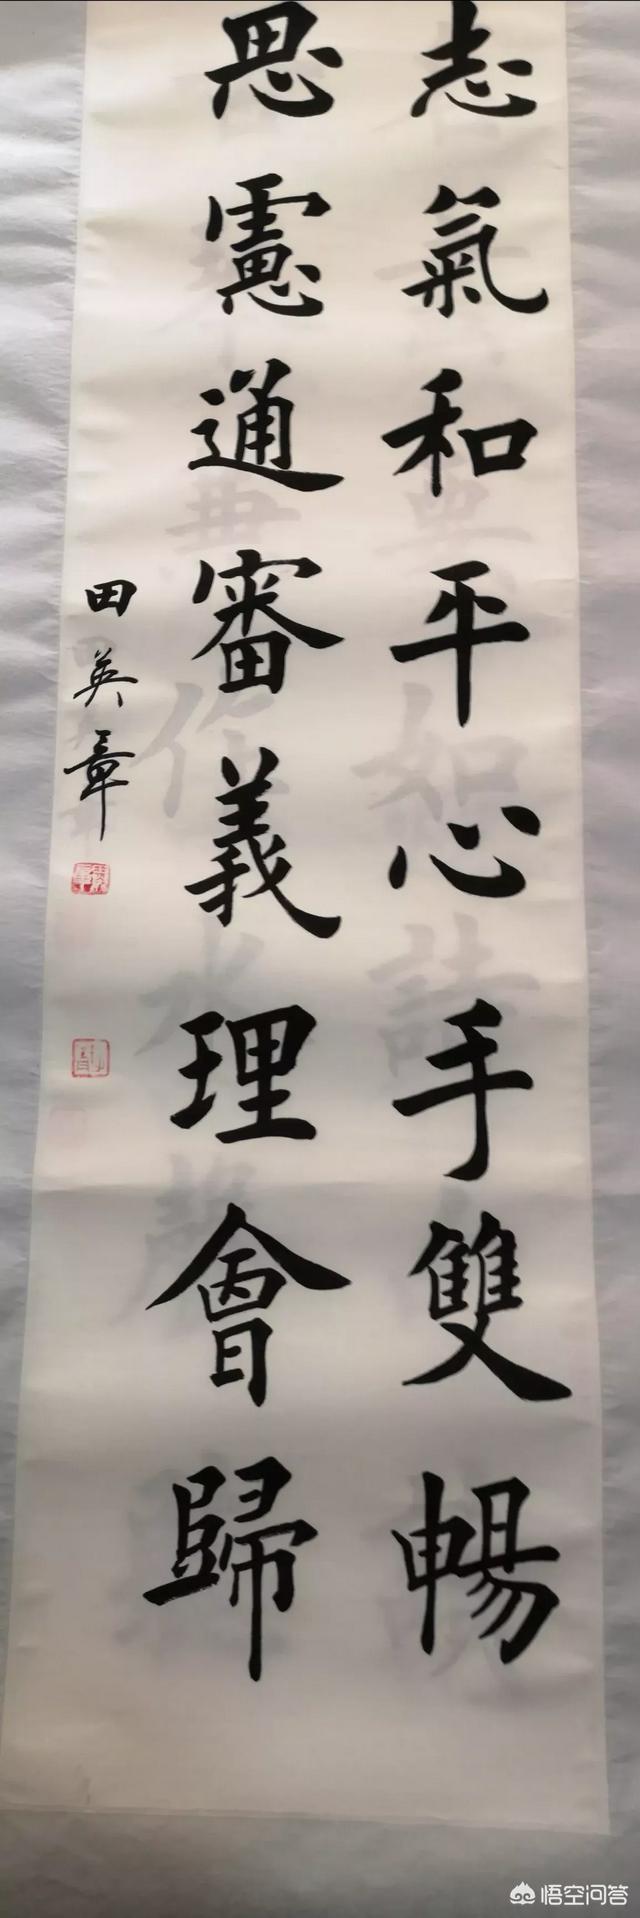 志氣和平心手雙暢
思慮通審義理會歸
田英章
悟空问答